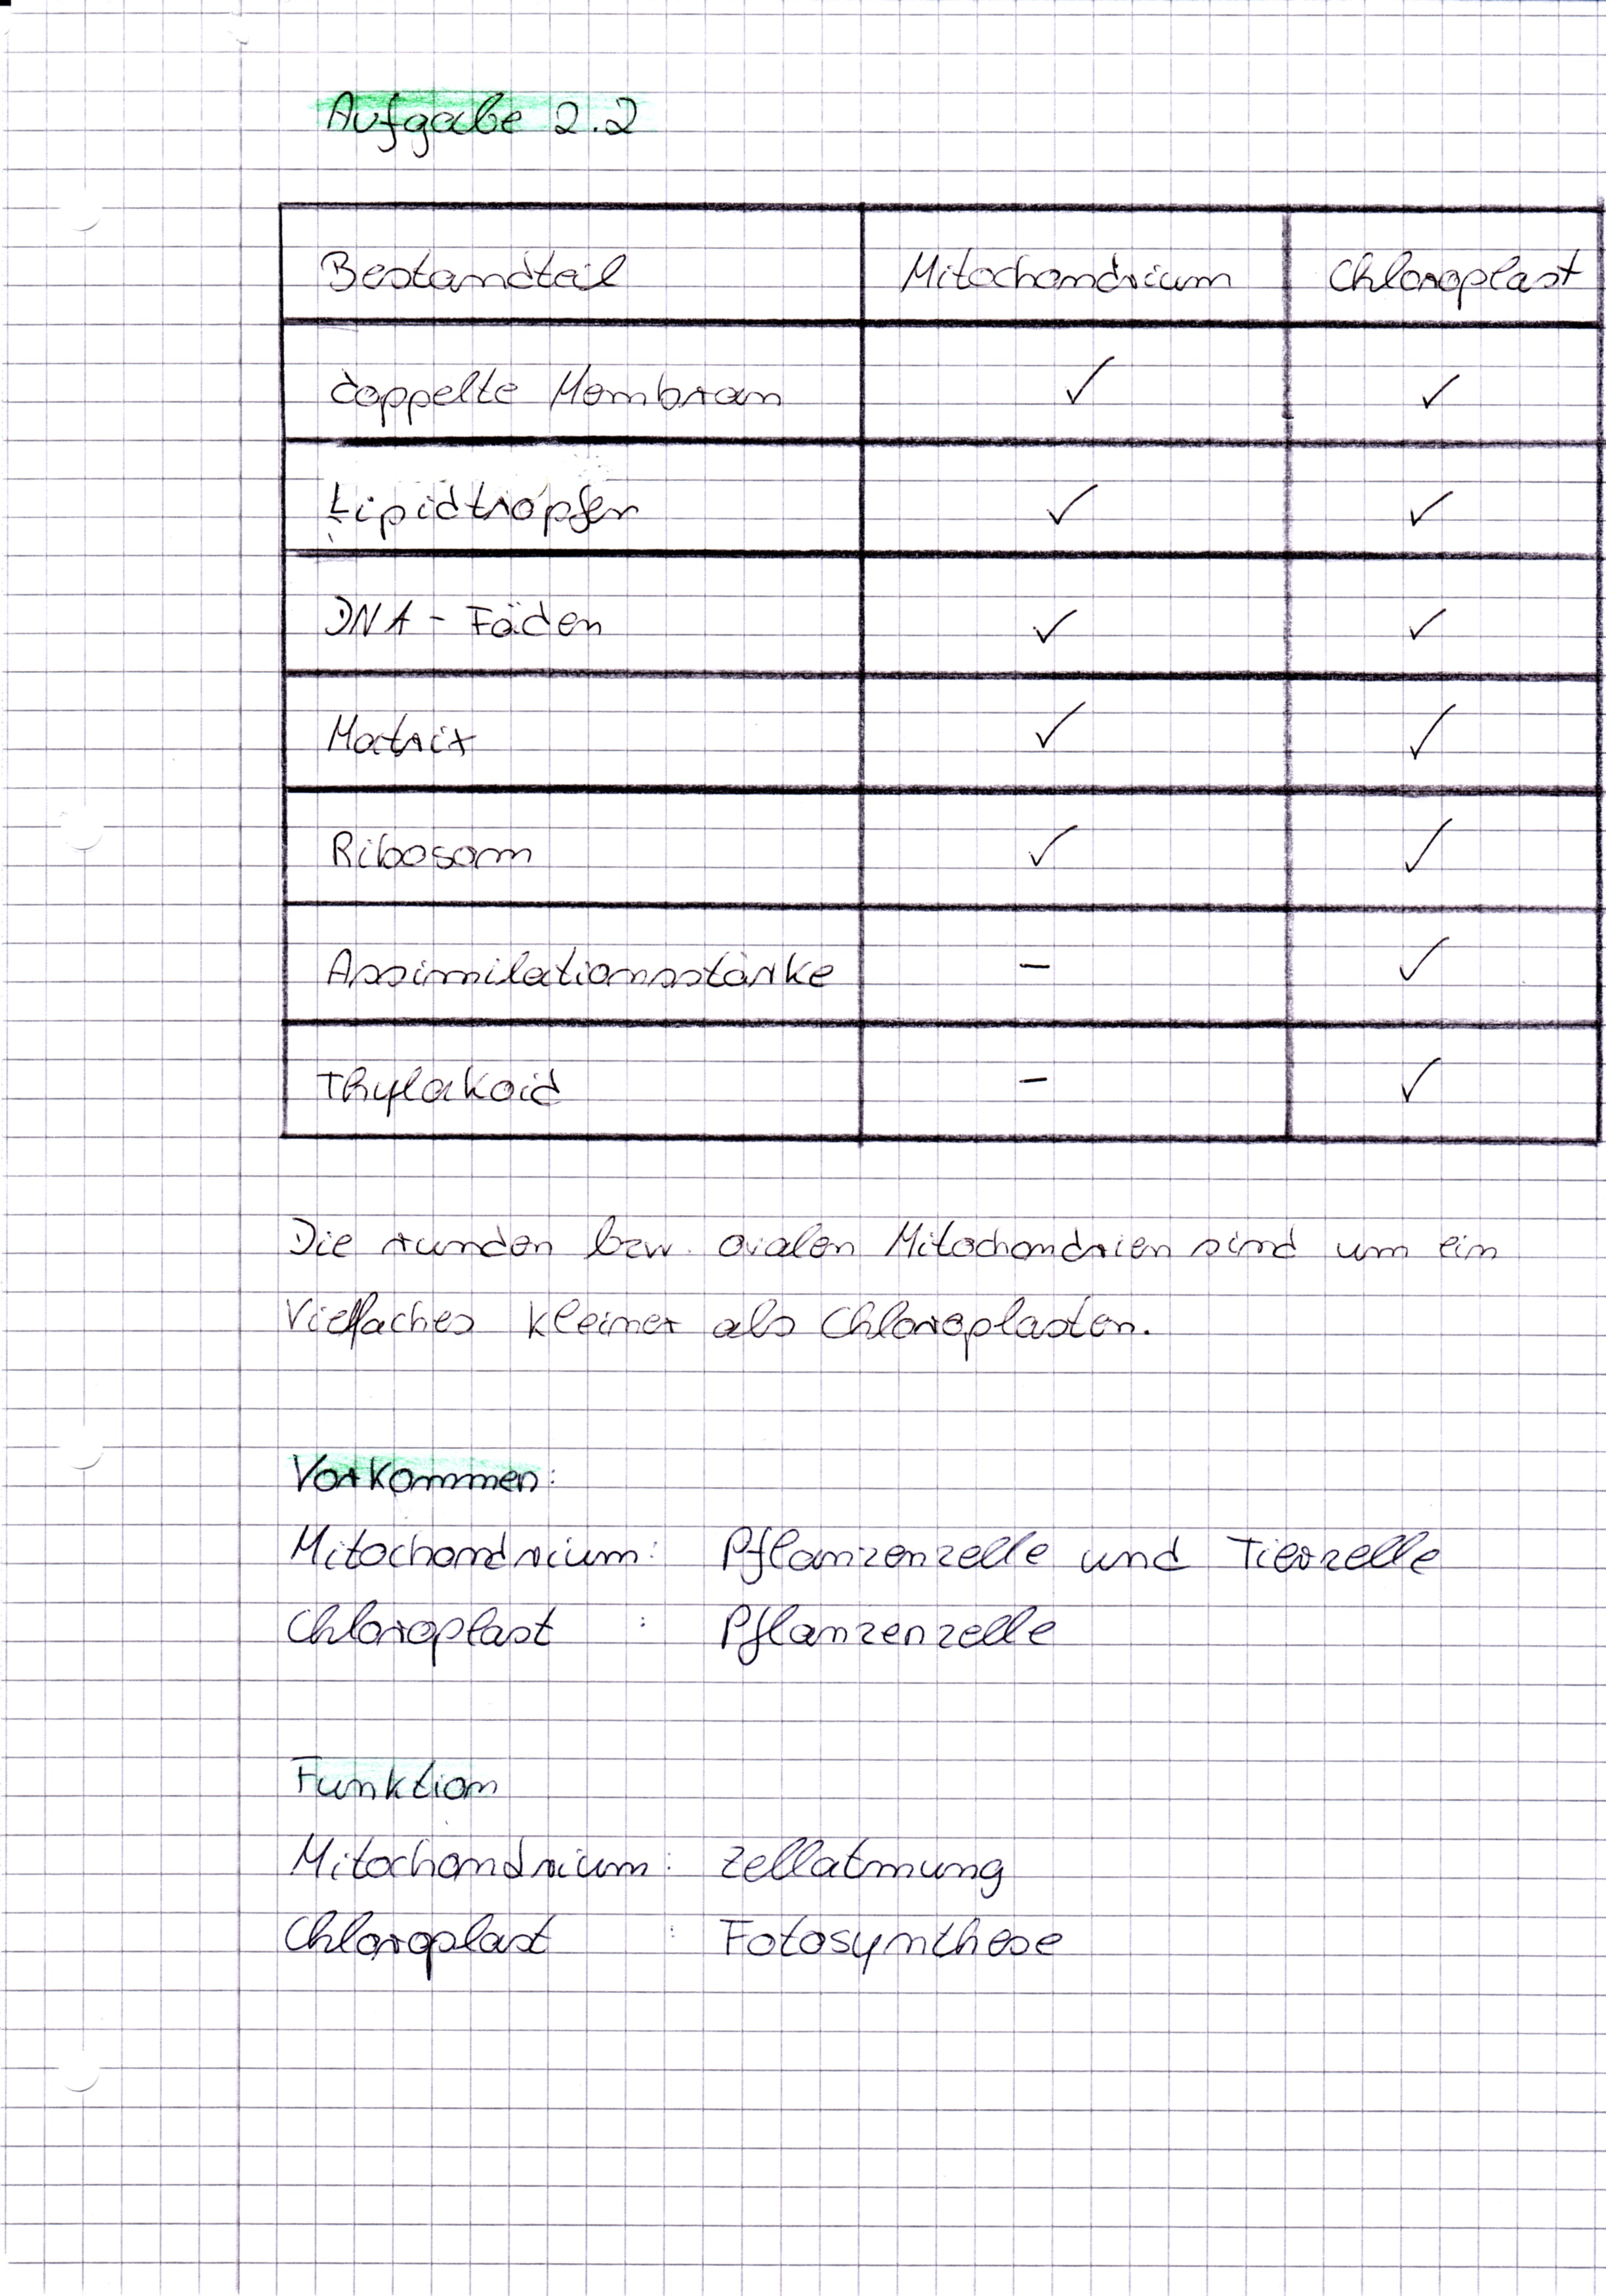 Aufgabe 2.2
Bestandteil Mitochondrium Chloroplast
doppelte Membran ✓ ✓
Lipidtropfen ✓ ✓
DNA - Fäden ✓ ✓
Matrix ✓ ✓
Ribosom ✓ ✓
Assimilationsstärke - ✓
Thylakoid - ✓
Die runden bzw. ovalen Mitochondrien sind um ein
Vielfaches kleiner als Chloroplasten.
Vorkommen:
Mitochondrium: Pflanzenzelle und Tierzelle
Chloroplast : Pflanzenzelle
Funktion
Mitochondrium: Zellatmung
Chloroplast : Fotosynthese